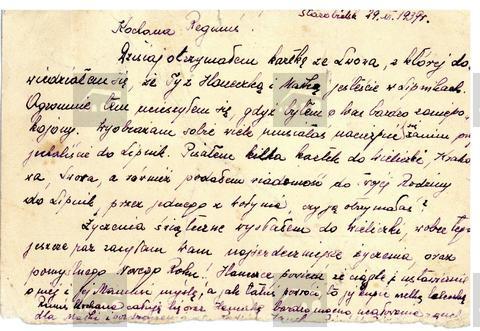 Starobielsk 29.XI.1939r.
Kochana Reguniu!
Dzisiaj otrzymałem kartkę ze Lwowa, z której do
wiedziałem się, że Ty z Haneczką i Matką jesteście w Lipnikach.
Ogromnie tem ucieszyłem się, gdyż byłem o Was bardzo zaniepo
kojony. Wyobrażam sobie wiele musiałaś zanim
do Lipnik. Pisałem kilka kartek do Wieliczki, Krako
wa, Lwowa, a również podałem wiadomość do Twojej Rodziny
do Lipnik, przez jednego z czy ją otrzymałaś?
Życzenia świąteczne wysłałem do Wieliczki, wobec tego
jeszcze raz zasyłam Wam najserdeczniejsze życzenia oraz
pomyślnego Nowego Roku. Haneczce powiedz że ciągle i ustawicznie
o niej i jej Mamusi myślę, a jak tatuś powróci to jej kupi wielką
całuję Cię oraz bardzo mocno
dla Matki i